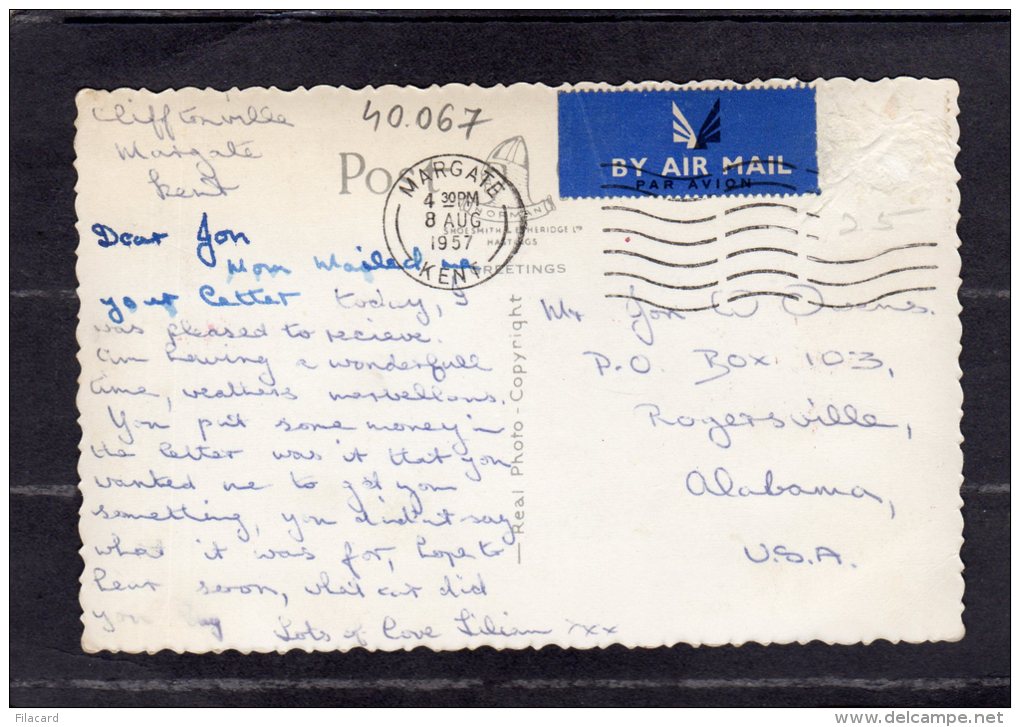 Clifftonville
Margate
Kent
40.067
Post
NORMAN
SHOESMITH & ETHERIDGE LTD
HASTINGS
GREETINGS
MARGATE
4 30PM
8 AUG
1957
KENT
BY AIR MAIL
PAR AVION
25
Dear Jon
Mom Mailed me
your Letter today, I
was pleased to recieve.
I'm having a wonderfull
time, weathers marvellous.
You put some money in
the letter was it that you
wanted me to get you
something, you didn't say
what it was for, hope to
hear soon, what car did
you buy
Lots of Love Lilian xxx
Real Photo - Copyright
Mr Jon W Owens.
P.O. Box 103,
Rogersville,
Alabama,
U.S.A.
Filacard
www.delcampe.net